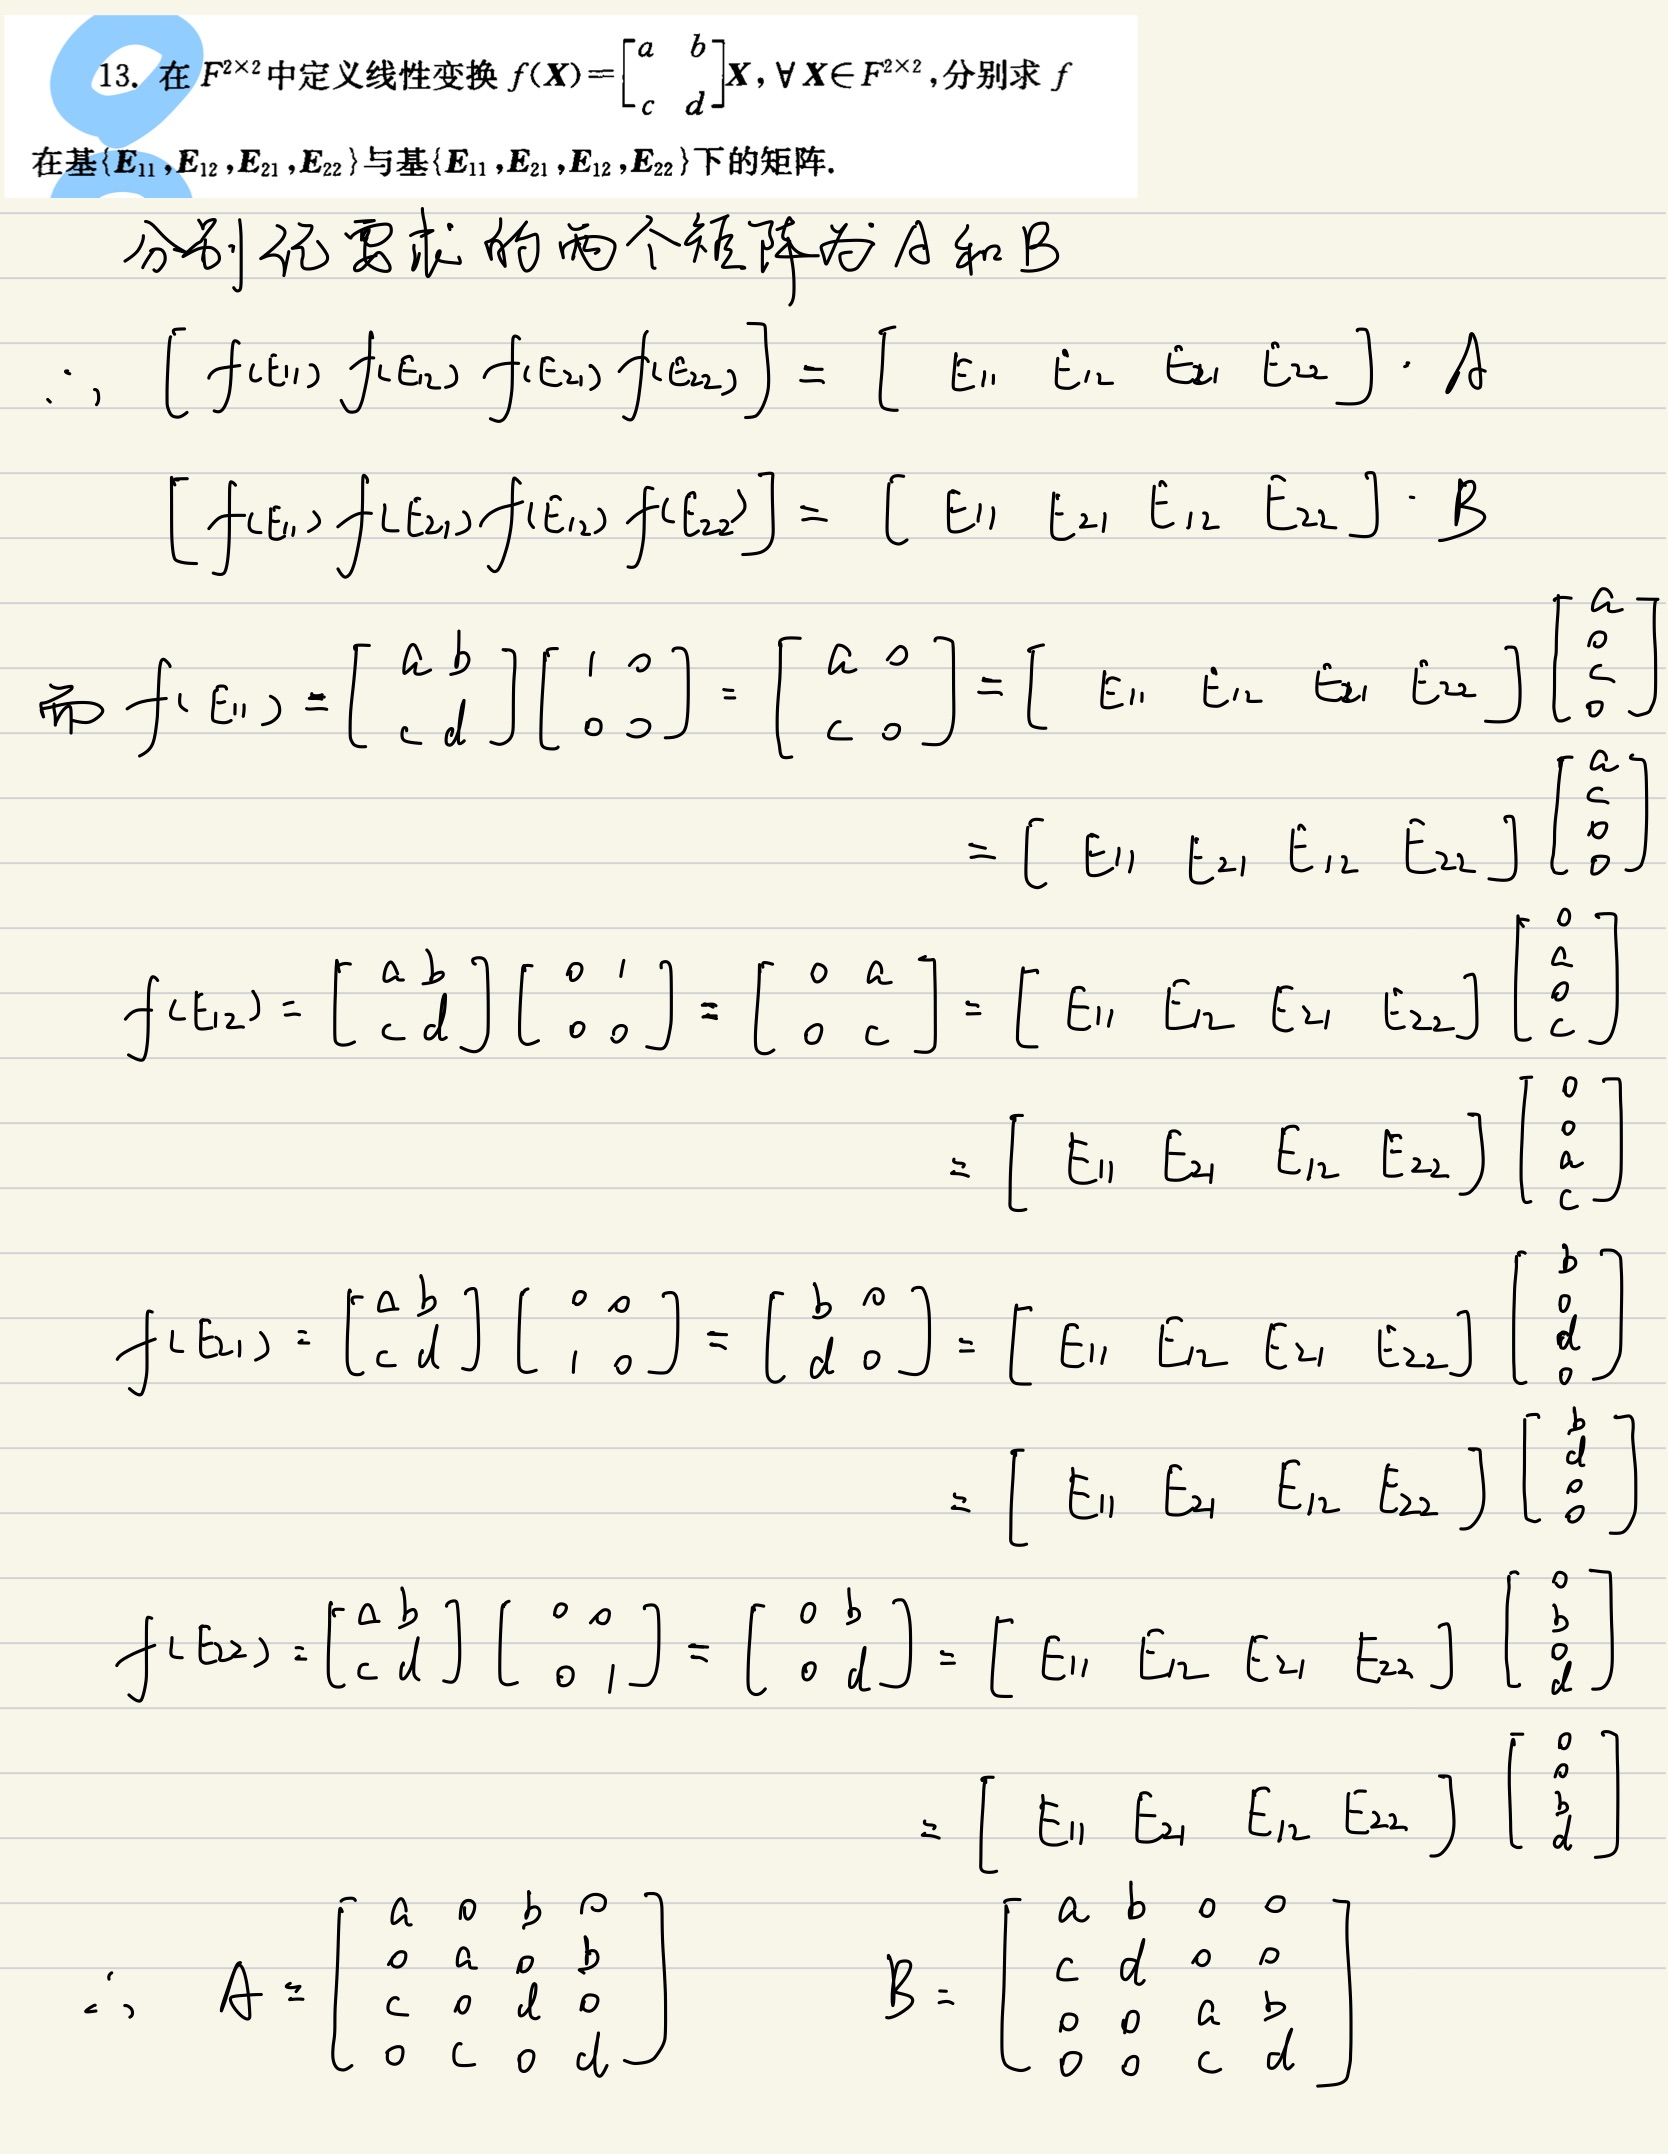 13. 在 F^{2×2} 中定义线性变换 f(X)=[a b; c d]X, ∀X∈F^{2×2},分别求 f
在基{E₁₁,E₁₂,E₂₁,E₂₂}与基{E₁₁,E₂₁,E₁₂,E₂₂}下的矩阵.
分别记要求的两个矩阵为A和B
∴ [f(E₁₁) f(E₁₂) f(E₂₁) f(E₂₂)] = [E₁₁ E₁₂ E₂₁ E₂₂]·A
[f(E₁₁) f(E₂₁) f(E₁₂) f(E₂₂)] = [E₁₁ E₂₁ E₁₂ E₂₂]·B
而 f(E₁₁) = [a b; c d][1 0; 0 0] = [a 0; c 0] = [E₁₁ E₁₂ E₂₁ E₂₂][a; 0; c; 0]
= [E₁₁ E₂₁ E₁₂ E₂₂][a; c; 0; 0]
f(E₁₂) = [a b; c d][0 1; 0 0] = [0 a; 0 c] = [E₁₁ E₁₂ E₂₁ E₂₂][0; a; 0; c]
= [E₁₁ E₂₁ E₁₂ E₂₂][0; 0; a; c]
f(E₂₁) = [a b; c d][0 0; 1 0] = [b 0; d 0] = [E₁₁ E₁₂ E₂₁ E₂₂][b; 0; d; 0]
= [E₁₁ E₂₁ E₁₂ E₂₂][b; d; 0; 0]
f(E₂₂) = [a b; c d][0 0; 0 1] = [0 b; 0 d] = [E₁₁ E₁₂ E₂₁ E₂₂][0; b; 0; d]
= [E₁₁ E₂₁ E₁₂ E₂₂][0; 0; b; d]
∴ A = [a 0 b 0; 0 a 0 b; c 0 d 0; 0 c 0 d] B = [a b 0 0; c d 0 0; 0 0 a b; 0 0 c d]